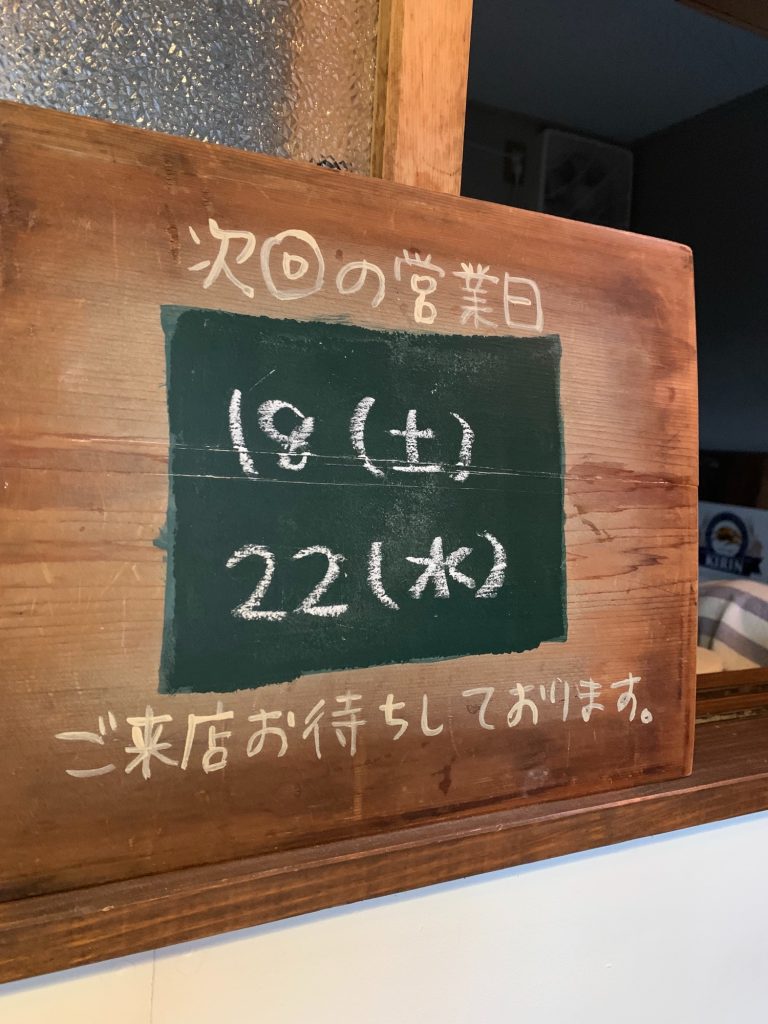 次回の営業日
18(土)
22(水)
ご来店お待ちしております。
KIRIN